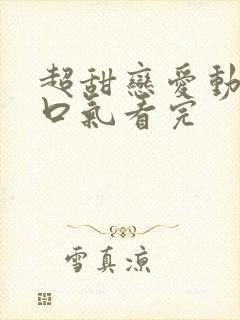 超甜戀愛動
口氣看完
雪真涼